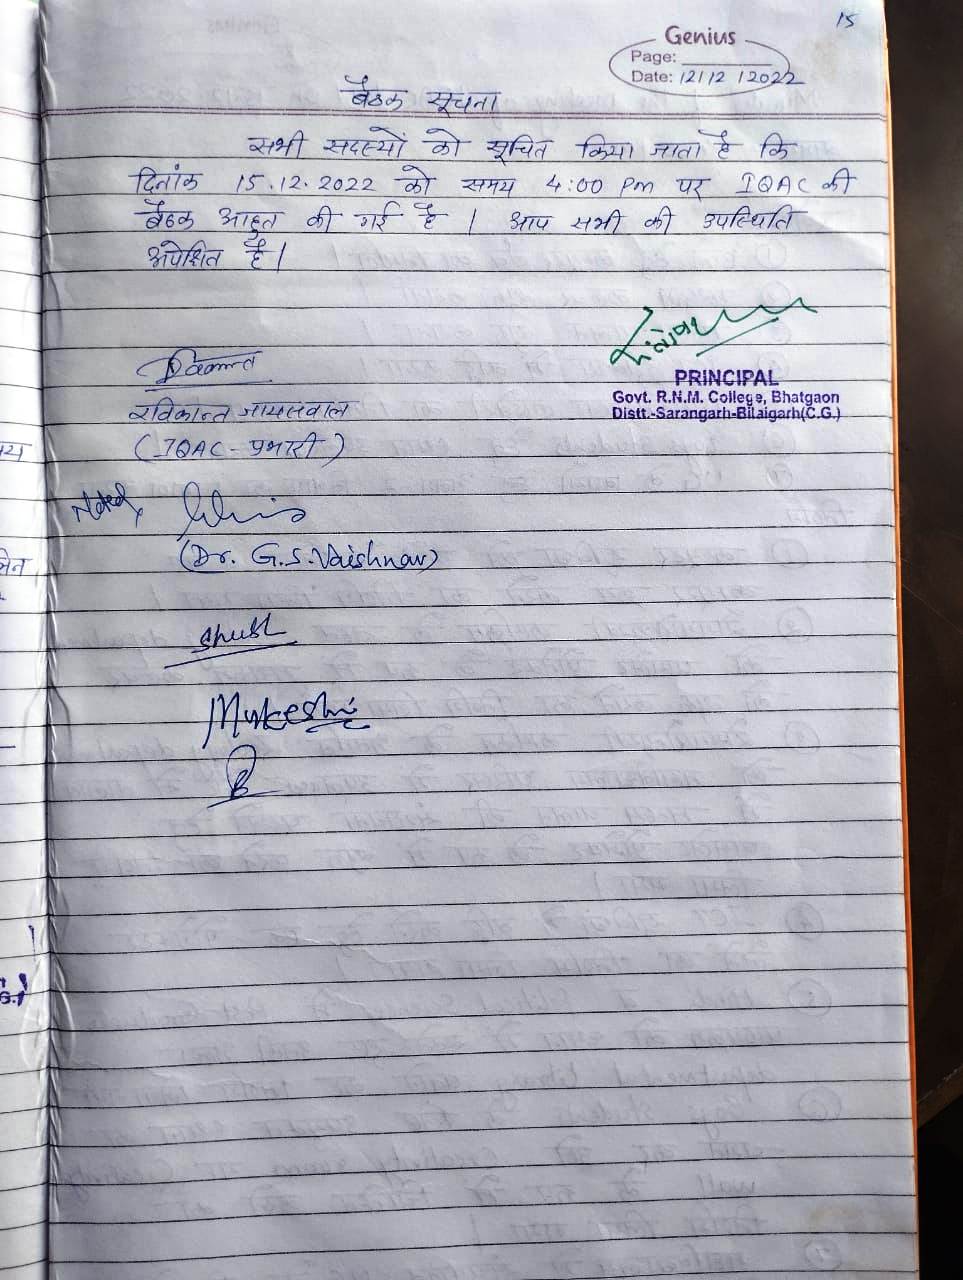 15
Genius
Page:
Date: 12/12/2022
बैठक सूचना
सभी सदस्यों को सूचित किया जाता है कि
दिनांक 15.12.2022 को समय 4:00 Pm पर IQAC की
बैठक आहुत की गई है । आप सभी की उपस्थिति
अपेक्षित है।
PRINCIPAL
Govt. R.N.M. College, Bhatgaon
Distt.-Sarangarh-Bilaigarh(C.G.)
रविकान्त जायसवाल
(IQAC - प्रभारी)
Noted,
(Dr. G.S. Vaishnav)
Mukesh